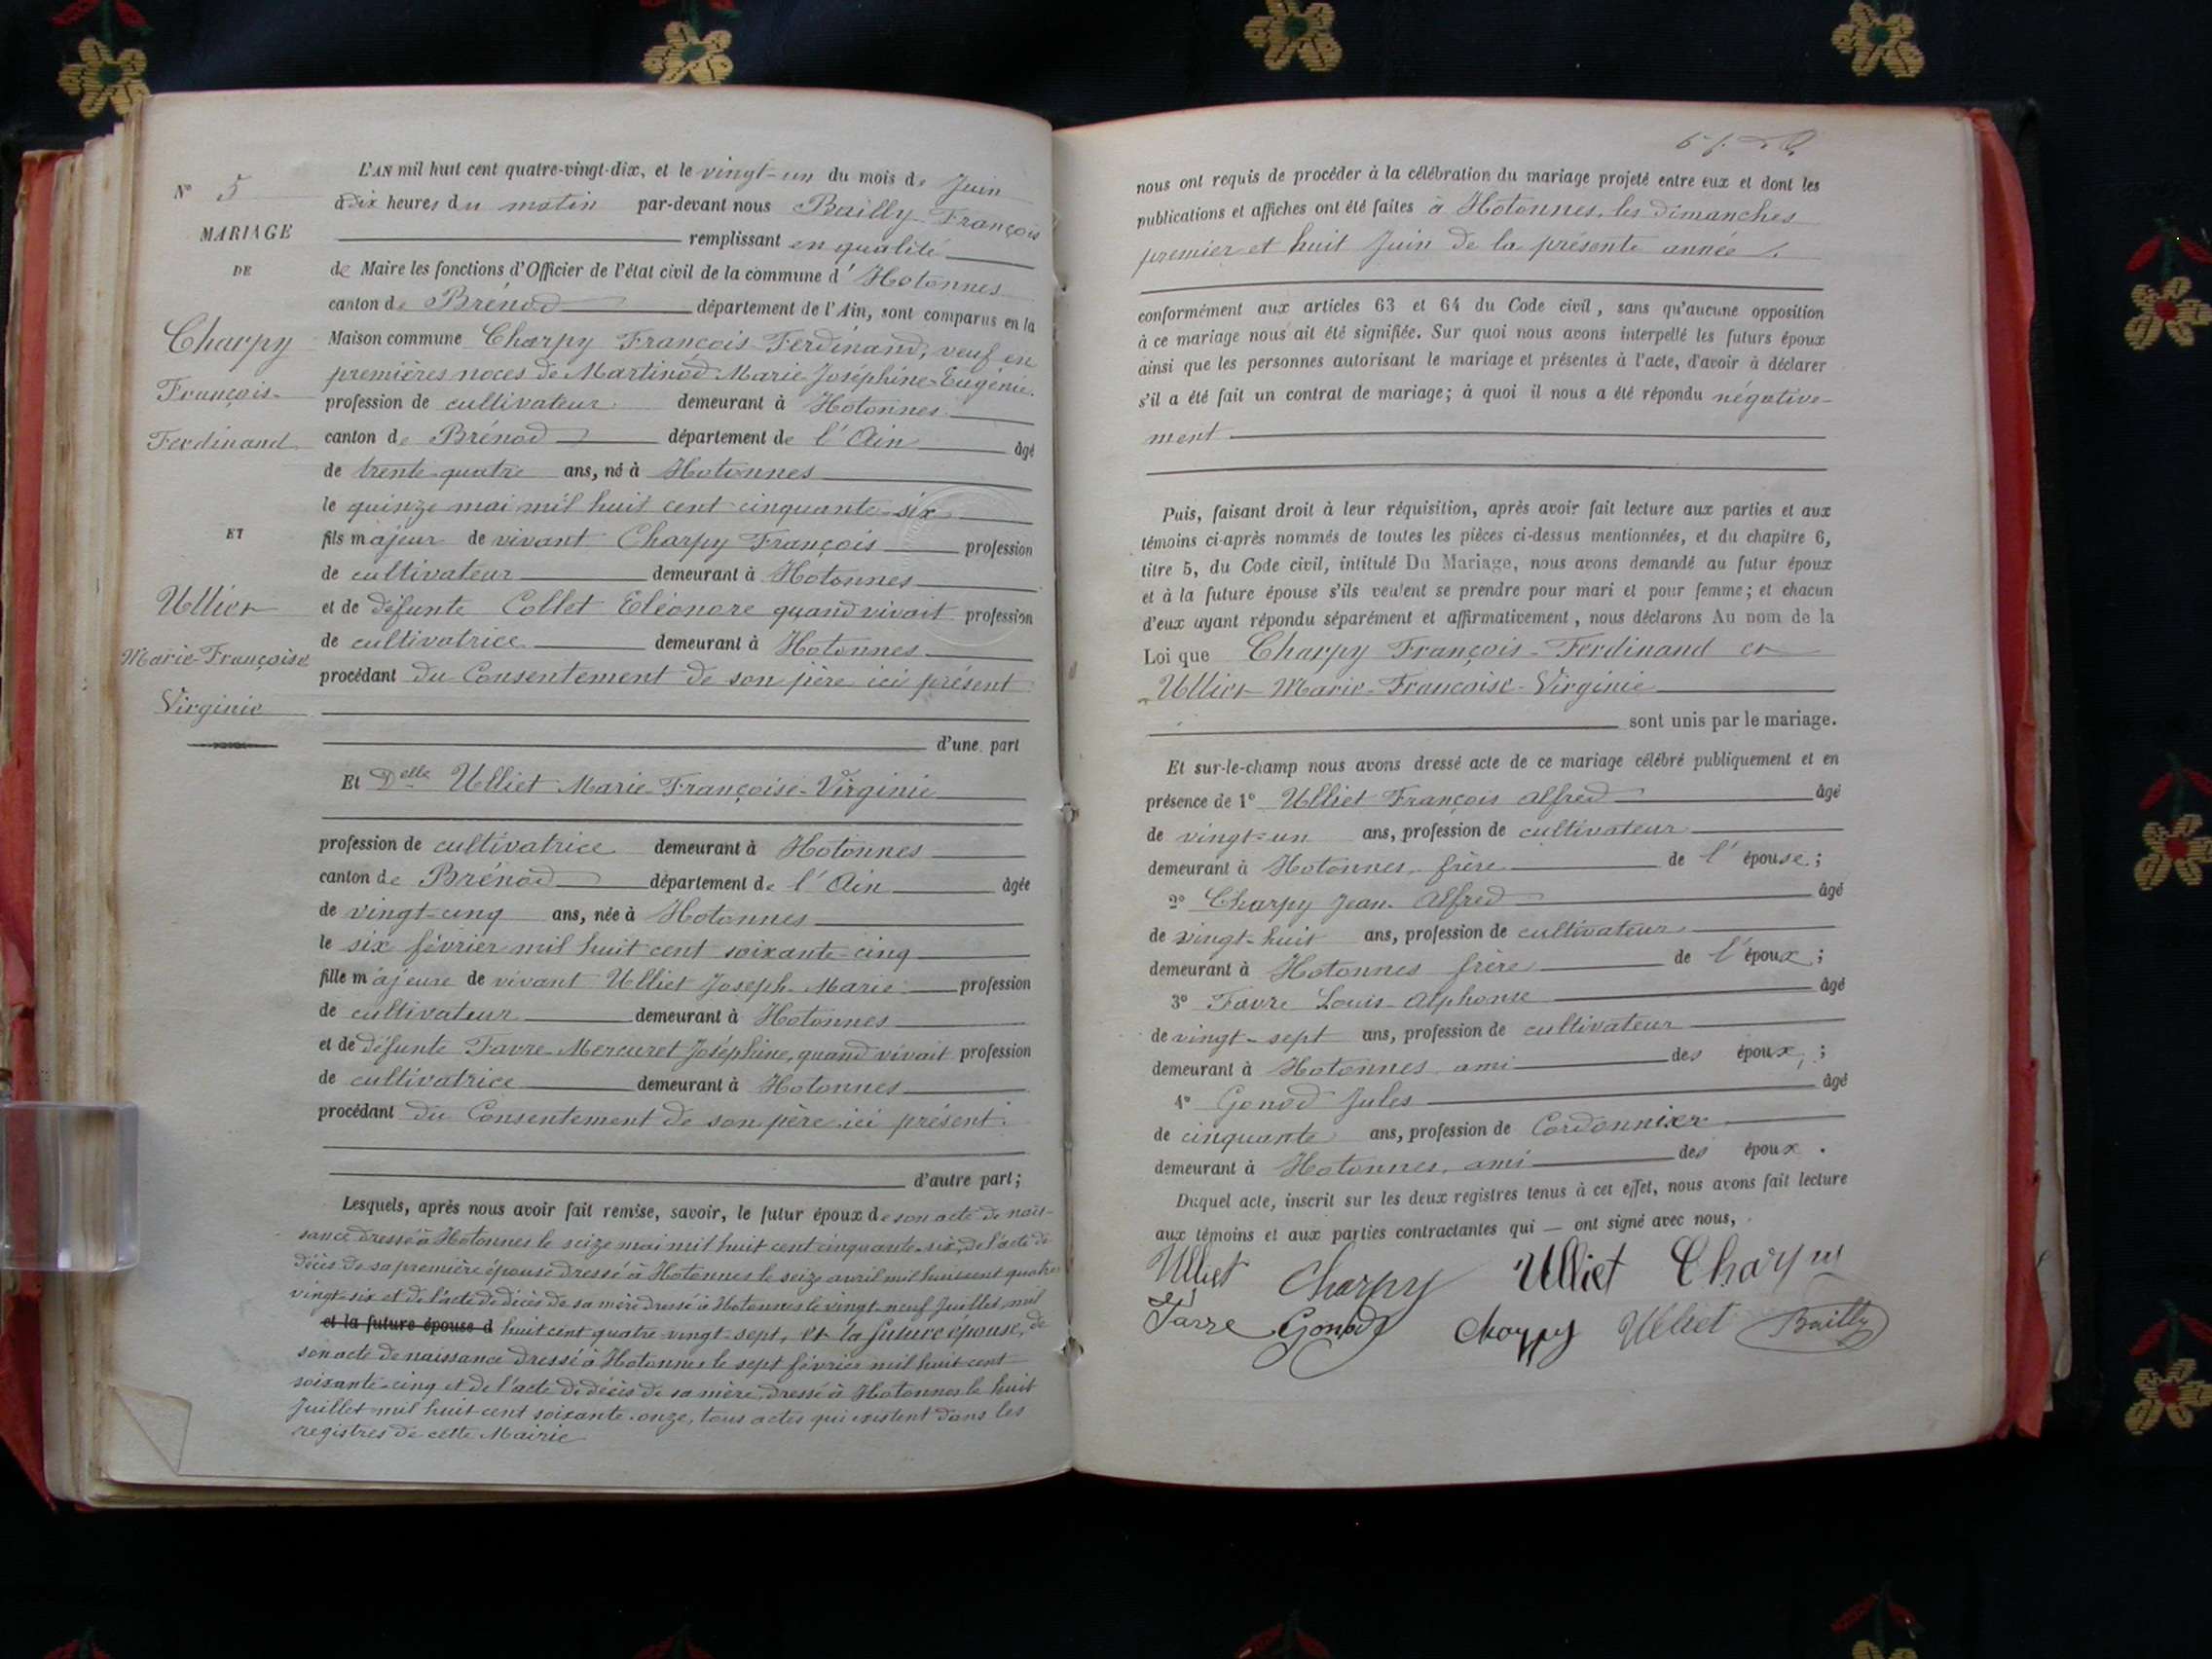 N° 5
MARIAGE
DE
Charpy
François-
Ferdinand
ET
Ulliet
Marie-Françoise
Virginie
L'AN mil huit cent quatre-vingt-dix, et le vingt-un du mois de Juin
à dix heures du matin par-devant nous Bailly François
remplissant en qualité
de Maire les fonctions d'Officier de l'état civil de la commune d'Hotonnes
canton de Brénod département de l'Ain, sont comparus en la
Maison commune Charpy François-Ferdinand, veuf en
premières noces de Martinod Marie-Joséphine-Eugénie.
profession de cultivateur demeurant à Hotonnes
canton de Brénod département de l'Ain âgé
de trente-quatre ans, né à Hotonnes
le quinze mai mil huit cent cinquante-six
fils majeur de vivant Charpy François profession
de cultivateur demeurant à Hotonnes
et de défunte Collet Eléonore quand vivait profession
de cultivatrice demeurant à Hotonnes
procédant du Consentement de son père ici présent
d'une part
Et Delle Ulliet Marie-Françoise-Virginie
profession de cultivatrice demeurant à Hotonnes
canton de Brénod département de l'Ain âgée
de vingt-cinq ans, née à Hotonnes
le six février mil huit cent soixante-cinq
fille majeure de vivant Ulliet Joseph-Marie profession
de cultivateur demeurant à Hotonnes
et de défunte Favre-Mercuret Joséphine, quand vivait profession
de cultivatrice demeurant à Hotonnes
procédant du Consentement de son père ici présent.
d'autre part;
Lesquels, après nous avoir fait remise, savoir, le futur époux de son acte de nais-
sance dressé à Hotonnes le seize mai mil huit cent cinquante-six, de l'acte de
décès de sa première épouse dressé à Hotonnes le seize avril mil huit cent quatre
vingt-six et de l'acte de décès de sa mère dressé à Hotonnes le vingt-neuf Juillet mil
et la future épouse d huit cent quatre-vingt-sept, et la future épouse, de
son acte de naissance dressé à Hotonnes le sept février mil huit cent
soixante-cinq et de l'acte de décès de sa mère, dressé à Hotonnes le huit
Juillet mil huit cent soixante-onze, tous actes qui existent dans les
registres de cette Mairie
nous ont requis de procéder à la célébration du mariage projeté entre eux et dont les
publications et affiches ont été faites à Hotonnes, les dimanches
premier et huit Juin de la présente année
conformément aux articles 63 et 64 du Code civil, sans qu'aucune opposition
à ce mariage nous ait été signifiée. Sur quoi nous avons interpellé les futurs époux
ainsi que les personnes autorisant le mariage et présentes à l'acte, d'avoir à déclarer
s'il a été fait un contrat de mariage; à quoi il nous a été répondu négative-
ment
Puis, faisant droit à leur réquisition, après avoir fait lecture aux parties et aux
témoins ci-après nommés de toutes les pièces ci-dessus mentionnées, et du chapitre 6,
titre 5, du Code civil, intitulé Du Mariage, nous avons demandé au futur époux
et à la future épouse s'ils veulent se prendre pour mari et pour femme; et chacun
d'eux ayant répondu séparément et affirmativement, nous déclarons Au nom de la
Loi que Charpy François-Ferdinand et
Ulliet Marie-Françoise-Virginie
sont unis par le mariage.
Et sur-le-champ nous avons dressé acte de ce mariage célébré publiquement et en
présence de 1° Ulliet François Alfred âgé
de vingt-un ans, profession de cultivateur
demeurant à Hotonnes, frère de l'épouse;
2° Charpy Jean Alfred âgé
de vingt-huit ans, profession de cultivateur
demeurant à Hotonnes frère de l'époux;
3° Favre Louis Alphonse âgé
de vingt-sept ans, profession de cultivateur
demeurant à Hotonnes ami des époux;
4° Gonod Jules âgé
de cinquante ans, profession de Cordonnier
demeurant à Hotonnes, ami des époux.
Duquel acte, inscrit sur les deux registres tenus à cet effet, nous avons fait lecture
aux témoins et aux parties contractantes qui — ont signé avec nous,
Ulliet Charpy Ulliet Charpy
Favre Gonod Charpy Ulliet Bailly